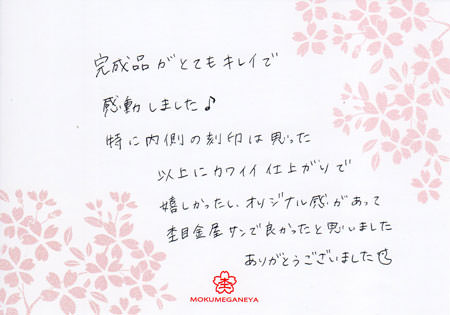 完成品がとてもキレイで
感動しました♪
特に内側の刻印は思った
以上にカワイイ仕上がりで
嬉しかったし、オリジナル感があって
杢目金屋サンで良かったと思いました
ありがとうございました
杢
MOKUMEGANEYA